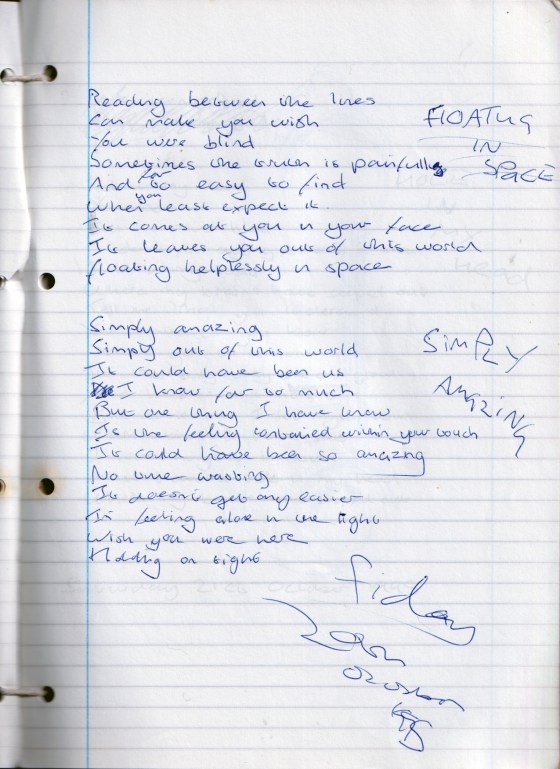 FLOATING
IN
SPACE
Reading between the lines
Can make you wish
You were blind
Sometimes the truth is painfull
And far to easy to find
When you least expect it
It comes at you in your face
It leaves you out of this world
floating helplessly in space
SIMPLY
AMAZING
Simply amazing
Simply out of this world
It could have been us
I know far to much
But one thing I have know
Is the feeling contained within your touch
It could have been so amazing
No time wasting
It doesn't get any easier
I'm feeling alone in the light
Wish you were here
Holding on tight
friday
2am
October